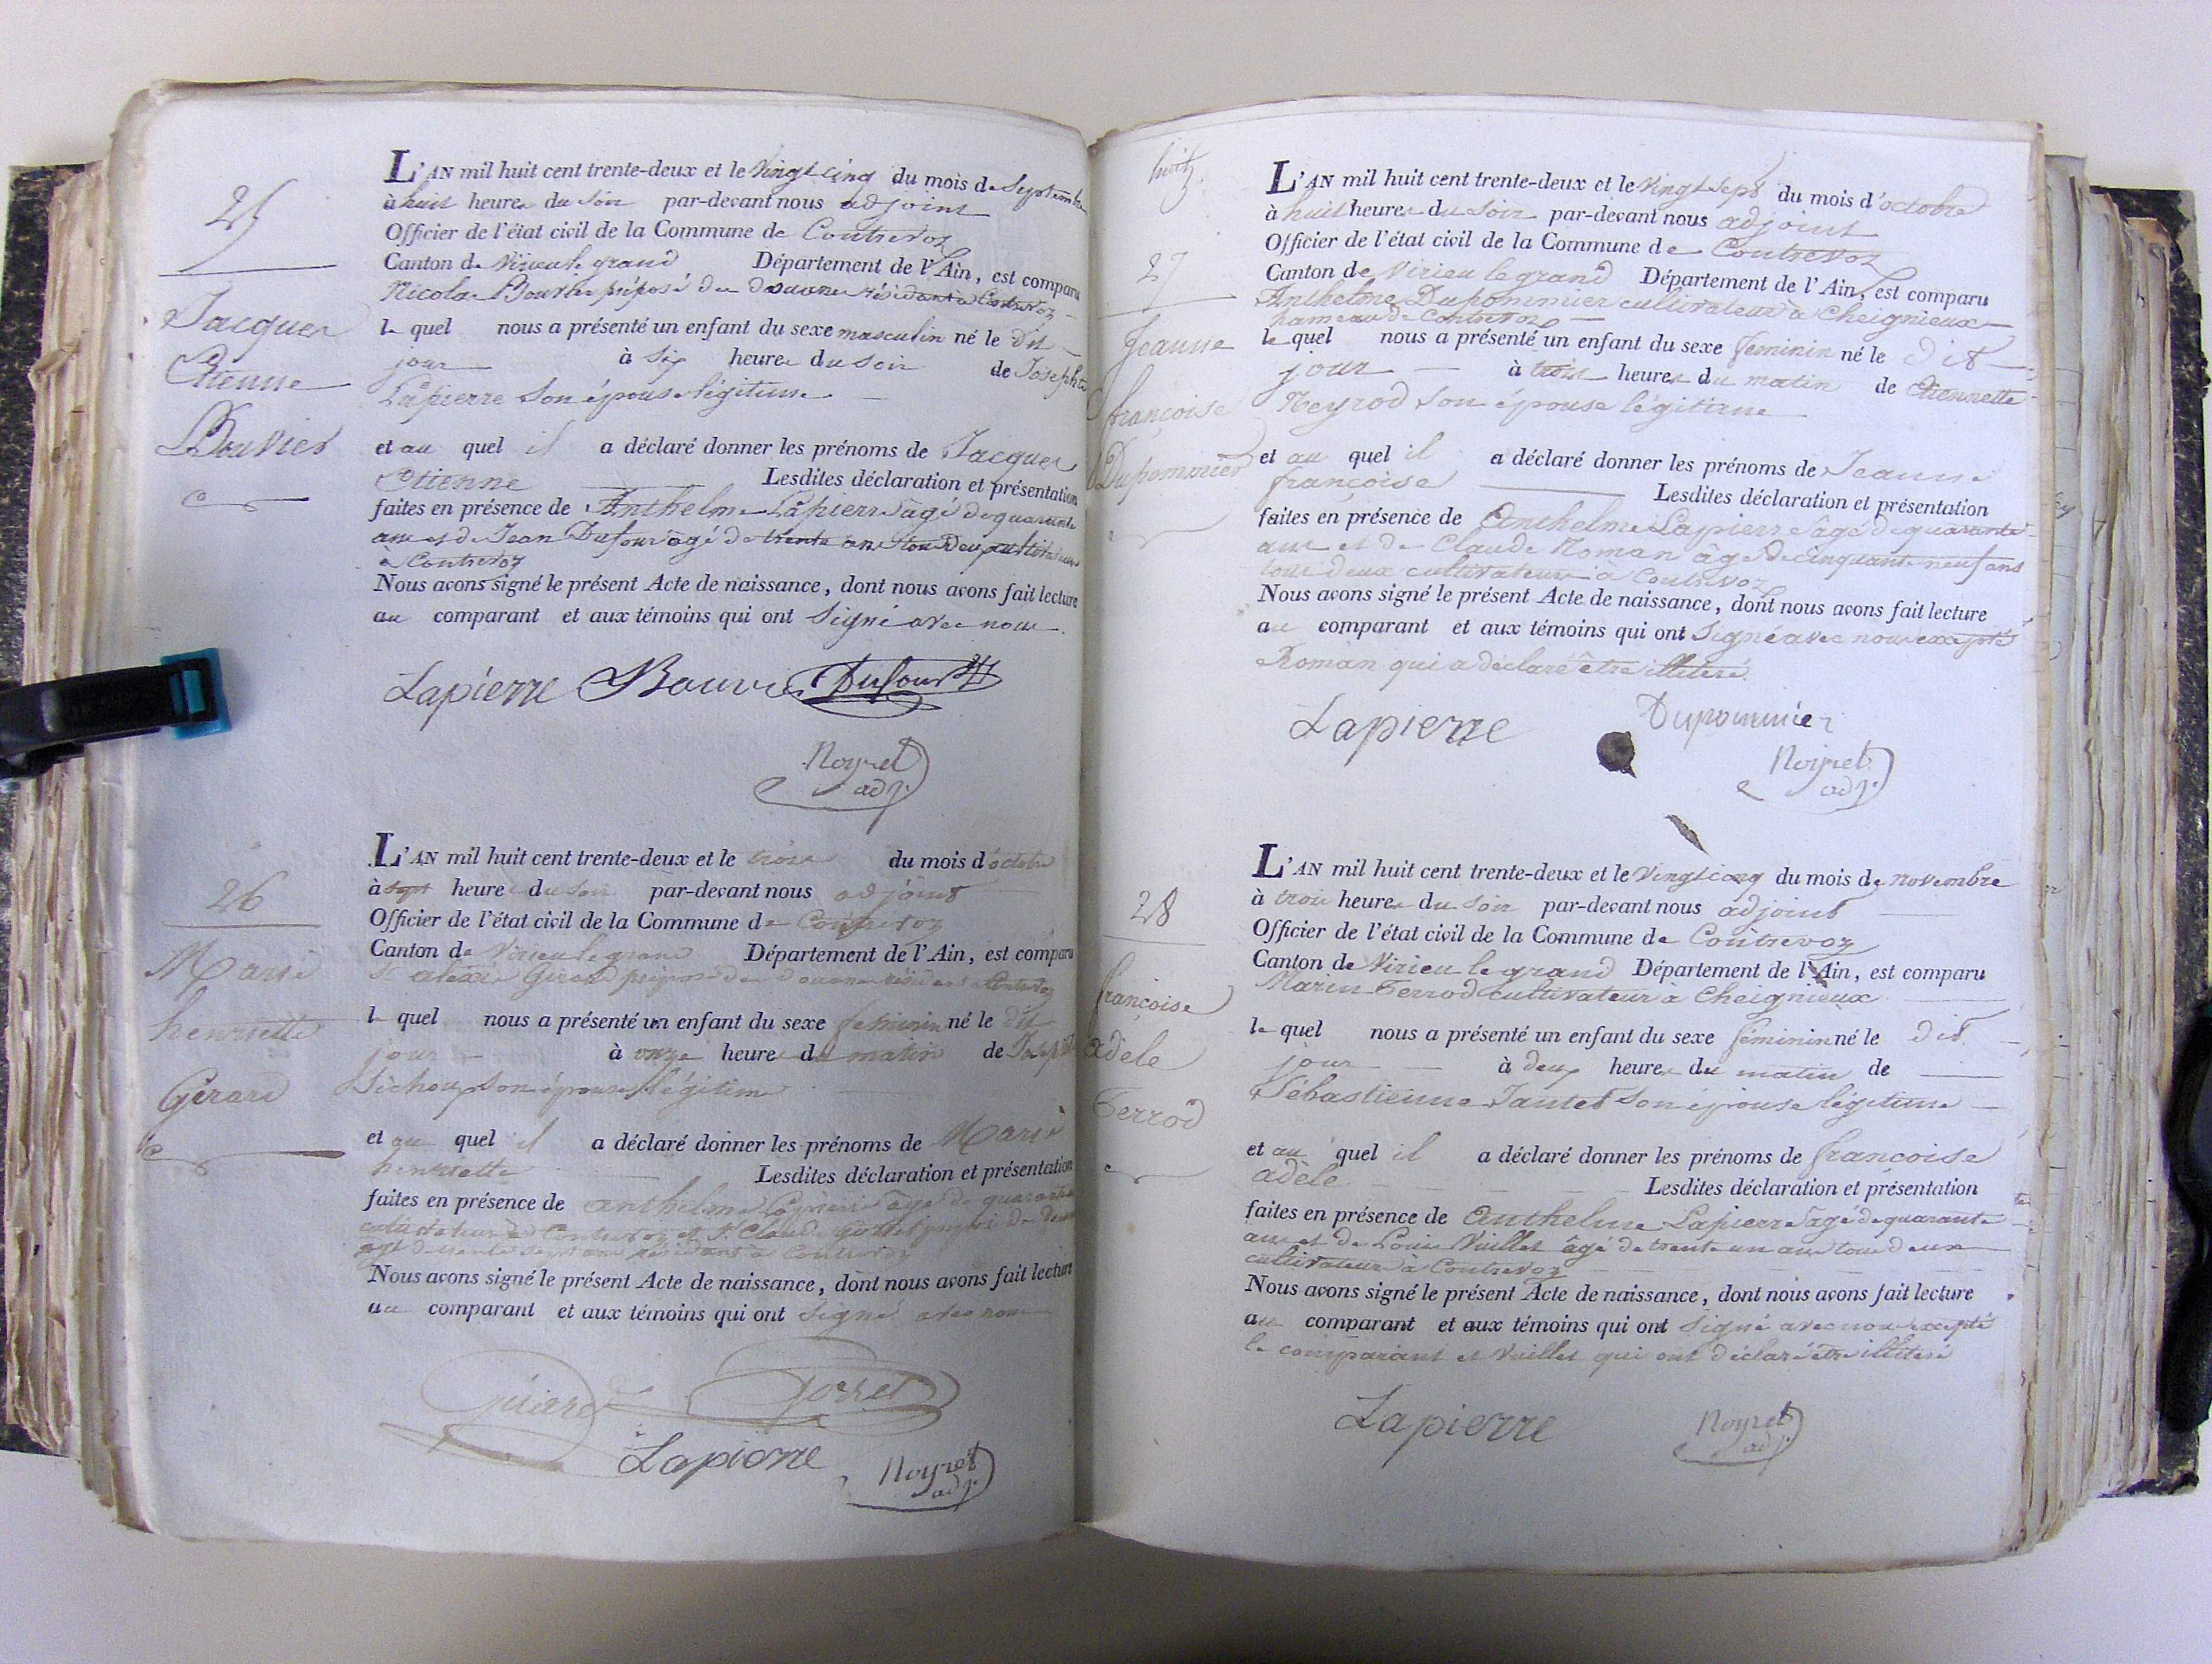 25
Jacques
Etienne
Bouvier
L'AN mil huit cent trente-deux et le vingt cinq du mois de Septembre
à huit heures du soir par-devant nous adjoint
Officier de l'état civil de la Commune de Contrevoz
Canton de Virieu le grand Département de l'Ain, est comparu
Nicolas Bouvier préposé des douanes résidant à Contrevoz
le quel nous a présenté un enfant du sexe masculin né le dit
jour à six heures du soir de Josephte
Lapierre son épouse légitime
et au quel il a déclaré donner les prénoms de Jacques
Etienne Lesdites déclaration et présentation
faites en présence de Anthelme Lapierre âgé de quarante
ans et de Jean Dufour âgé de trente ans tous deux cultivateurs
à Contrevoz
Nous avons signé le présent Acte de naissance, dont nous avons fait lecture
au comparant et aux témoins qui ont signé avec nous
Lapierre Bouvier Dufour
Noyret
adj.
26
Marie
henriette
Gérard
L'AN mil huit cent trente-deux et le trois du mois d'octobre
à sept heures du soir par-devant nous adjoint
Officier de l'état civil de la Commune de Contrevoz
Canton de Virieu le grand Département de l'Ain, est comparu
Sr alexis Gérard préposé des douanes résidant à Contrevoz
le quel nous a présenté un enfant du sexe feminin né le dit
jour à onze heures du matin de
son épouse légitime
et au quel il a déclaré donner les prénoms de Marie
henriette Lesdites déclaration et présentation
faites en présence de anthelme Lapierre âgé de quarante
cultivateur à Contrevoz et Sr Claude préposé des
résidant à Contrevoz
Nous avons signé le présent Acte de naissance, dont nous avons fait lecture
au comparant et aux témoins qui ont signé avec nous
Lapierre
Noyret
adj.
huit
27
Jeanne
françoise
Dupommier
L'AN mil huit cent trente-deux et le vingt sept du mois d'octobre
à huit heures du soir par-devant nous adjoint
Officier de l'état civil de la Commune de Contrevoz
Canton de Virieu le grand Département de l'Ain, est comparu
Anthelme Dupommier cultivateur à Cheignieux
hameau de Contrevoz
le quel nous a présenté un enfant du sexe féminin né le dit
jour à trois heures du matin de Etiennette
Neyrod son épouse légitime
et au quel il a déclaré donner les prénoms de Jeanne
françoise Lesdites déclaration et présentation
faites en présence de Anthelme Lapierre âgé de quarante
ans et de Claude Roman âgé de cinquante neuf ans
tous deux cultivateurs à Contrevoz
Nous avons signé le présent Acte de naissance, dont nous avons fait lecture
au comparant et aux témoins qui ont signé avec nous excepté
Roman qui a déclaré être illitéré
Lapierre Dupommier
Noyret
adj.
28
françoise
adèle
Ferrod
L'AN mil huit cent trente-deux et le vingt cinq du mois de novembre
à trois heures du soir par-devant nous adjoint
Officier de l'état civil de la Commune de Contrevoz
Canton de Virieu le grand Département de l'Ain, est comparu
Marin Ferrod cultivateur à Cheignieux
le quel nous a présenté un enfant du sexe féminin né le dit
jour à deux heures du matin de
Sébastienne Jantet son épouse légitime
et au quel il a déclaré donner les prénoms de françoise
adèle Lesdites déclaration et présentation
faites en présence de Anthelme Lapierre âgé de quarante
ans et de Louis Vuillet âgé de trente un ans tous deux
cultivateurs à Contrevoz
Nous avons signé le présent Acte de naissance, dont nous avons fait lecture
au comparant et aux témoins qui ont signé avec nous excepté
le comparant et Vuillet qui ont déclaré être illitéré
Lapierre
Noyret
adj.